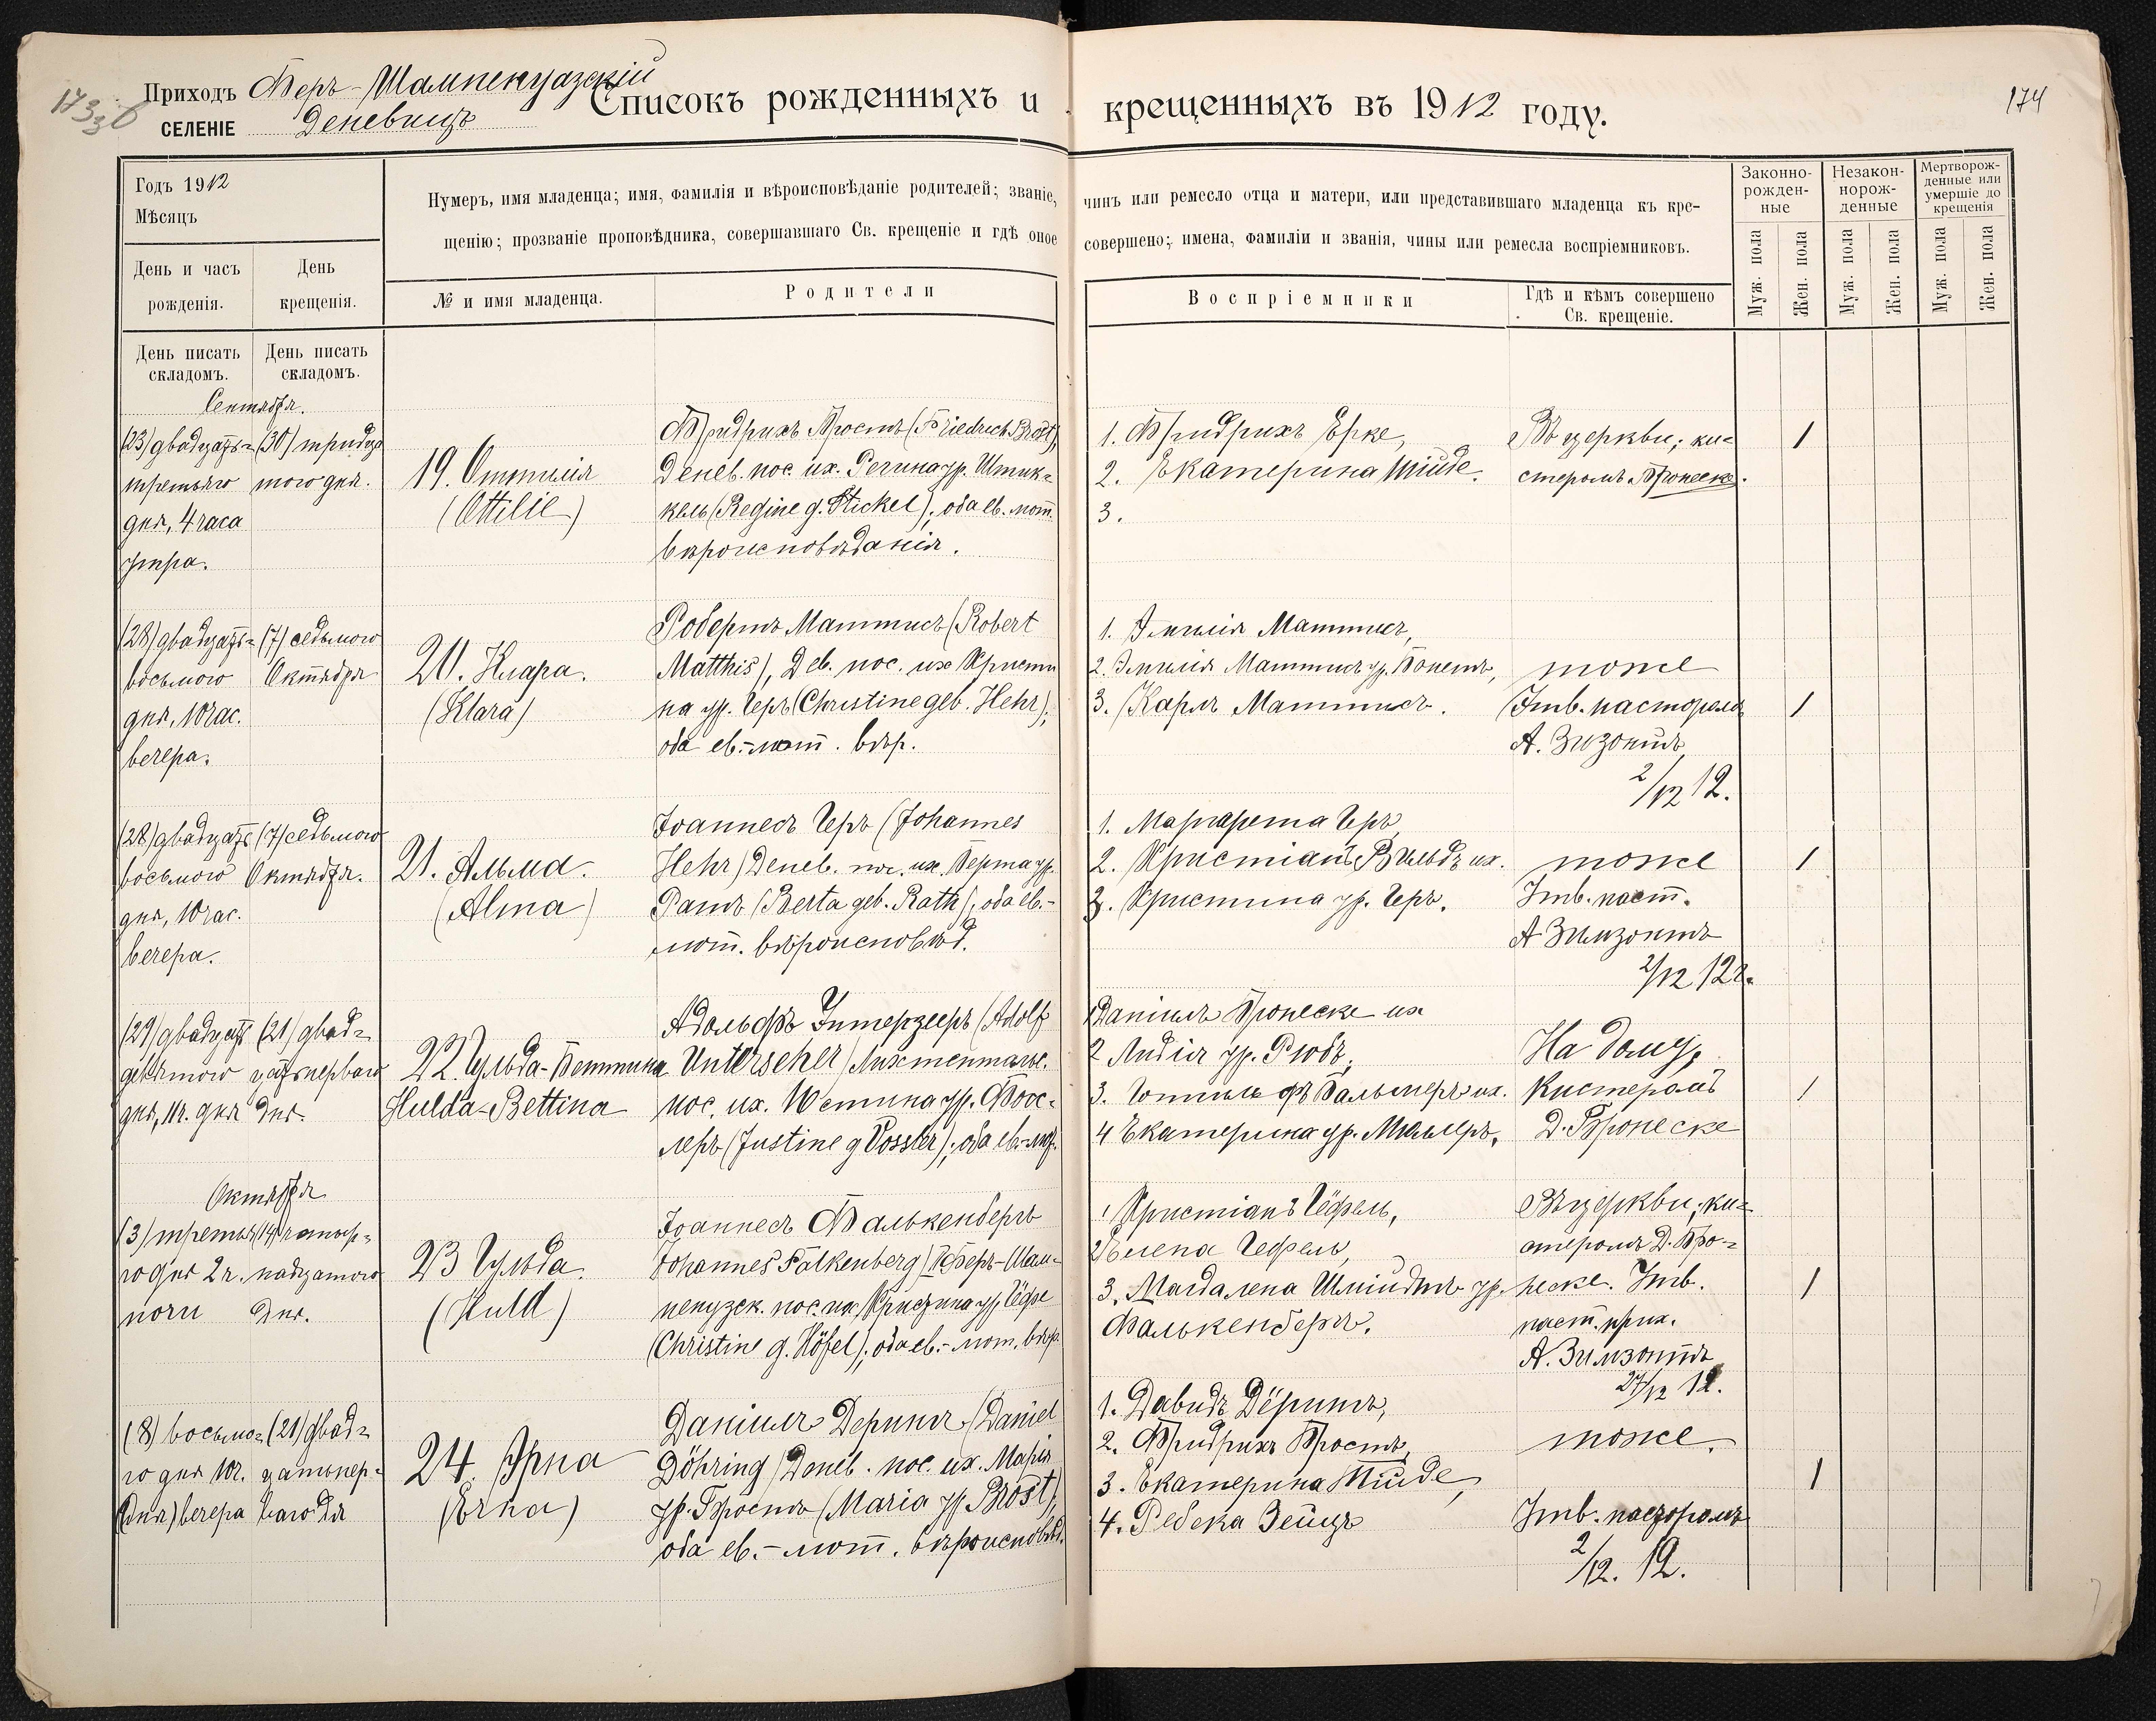 Приходъ Феръ-Шампенуазскій
СЕЛЕНІЕ Деневицъ
Списокъ рожденныхъ и крещенныхъ въ 1912 году.
174
Годъ 1912
Мѣсяцъ
День и часъ рожденія.
День крещенія.
Нумеръ, имя младенца; имя, фамилія и вѣроисповѣданіе родителей; званіе, чинъ или ремесло отца и матери, или представившаго младенца къ кре-
щенію; прозваніе проповѣдника, совершавшаго Св. крещеніе и гдѣ оное совершено; имена, фамиліи и званія, чины или ремесла воспріемниковъ.
№ и имя младенца.
Родители
Воспріемники
Гдѣ и кѣмъ совершено
Св. крещеніе.
Законно-
рожден-
ные
Незакон-
норож-
денные
Мертворож-
денные или
умершіе до
крещенія
Муж. пола
Жен. пола
Муж. пола
Жен. пола
Муж. пола
Жен. пола
День писать
складомъ.
День писать
складомъ.
Сентября.
(23) двадцать-
третьяго
дня, 4 часа
утра.
(30) тридца
того дня.
19. Оттилія
(Ottilie)
Фридрихъ Бростъ (Friedrich Brost),
Денев. пос. их. Регина ур. Штик-
кель (Regine g. Stickel); оба ев. лют.
вѣроисповѣданія.
1. Фридрихъ Ерке,
2. Екатерина Тиде.
3.
Въ церкви; ки-
стеромъ Бронеске.
1
(28) двадцать-
восьмого
дня, 10 час.
вечера.
(7) седьмого
Октября
20. Клара.
(Klara)
Робертъ Маттисъ (Robert
Matthis), Дев. пос. их Кристи
на ур. Геръ (Christine geb. Hehr);
оба ев.-лют. вѣр.
1. Эмилія Маттисъ,
2. Эмилія Маттисъ ур. Бонетъ,
3. Карлъ Маттисъ.
тоже
Утв. пасторомъ
А. Зизонтъ
2/12 12.
1
(28) двадцать
восьмого
дня, 10 час.
вечера.
(7) седьмого
Октября.
21. Альма.
(Alma)
Іоаннесъ Геръ (Johannes
Hehr) Денев. пос. их. Берта ур.
Ратъ (Berta geb. Rath); оба ев.-
лют. вѣроисповѣд.
1. Маргарета Геръ
2. Кристіанъ Вильдъ их.
3. Кристина ур. Геръ.
тоже
Утв. паст.
А Зимзонтъ
2/12 12
1
(29) двадцать
девятого
дня, 1 ч. дня
(21) двад-
цать перваго
дня.
22. Гульда-Беттина
Hulda-Bettina
Адольфъ Унтерзееръ (Adolf
Unterseher) Лихтентальс.
пос. их. Юстина ур. Фосс-
леръ (Justine g Vossler); оба ев.-лют.
1 Даніилъ Бронеске их
2 Лидія ур. Рюбъ,
3. Готтлибъ Бальмеръ их.
4 Екатерина ур. Мюллеръ.
На дому,
Кистеромъ
Д. Бронеске
1
Октября
(3) третья
го дня 2 ч.
ночи
(14) четыр-
надцатого
дня.
23 Гульда.
(Huld)
Іоаннесъ Фалькенбергъ
Johannes Falkenberg) Феръ-Шам-
пенузск. пос. их Кристина ур. Гёфе
(Christine g. Höfel); оба ев.-лют. вѣр.
1 Кристіанъ Гёфель,
2 Елена Гефель,
3. Магдалена Шмидтъ ур.
Фалькенбергъ.
Въ церкви; ки-
стеромъ Д. Бро-
неске. Утв.
паст. прих.
А. Зимзонтъ
27/12 12.
1
(8) восьмо-
го дня 10 ч.
(дня) вечера
(21) двад-
цатьпер-
ваго дня
24. Эрна
(Erna)
Даніилъ Дерингъ (Daniel
Döhring) Денев. пос. их. Марія
ур. Бростъ (Maria ур Brost),
оба ев.-лют. вѣроисповѣд.
1. Давидъ Дёрингъ,
2. Фридрихъ Бростъ,
3. Екатерина Тиде,
4. Ребека Зейцъ
тоже.
Утв. пасторомъ
2/12. 12.
1